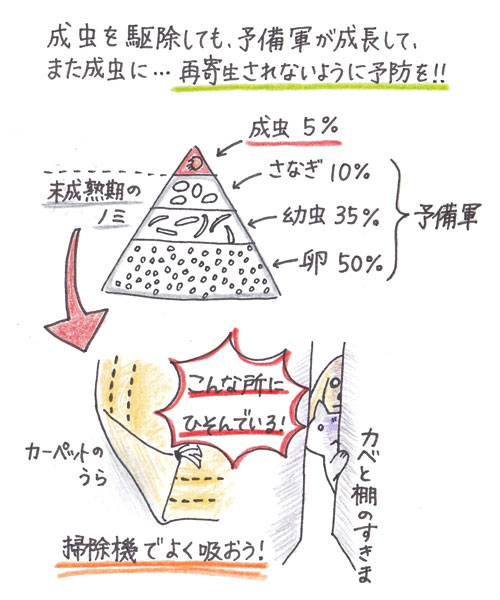 成虫を駆除しても、予備軍が成長して、
また成虫に…再寄生されないように予防を!!
成虫 5%
さなぎ 10%
未成熟期の
ノミ
幼虫 35%
予備軍
卵 50%
こんな所に
ひそんでいる!
カーペットの
うら
カベと棚のすきま
掃除機でよく吸おう!